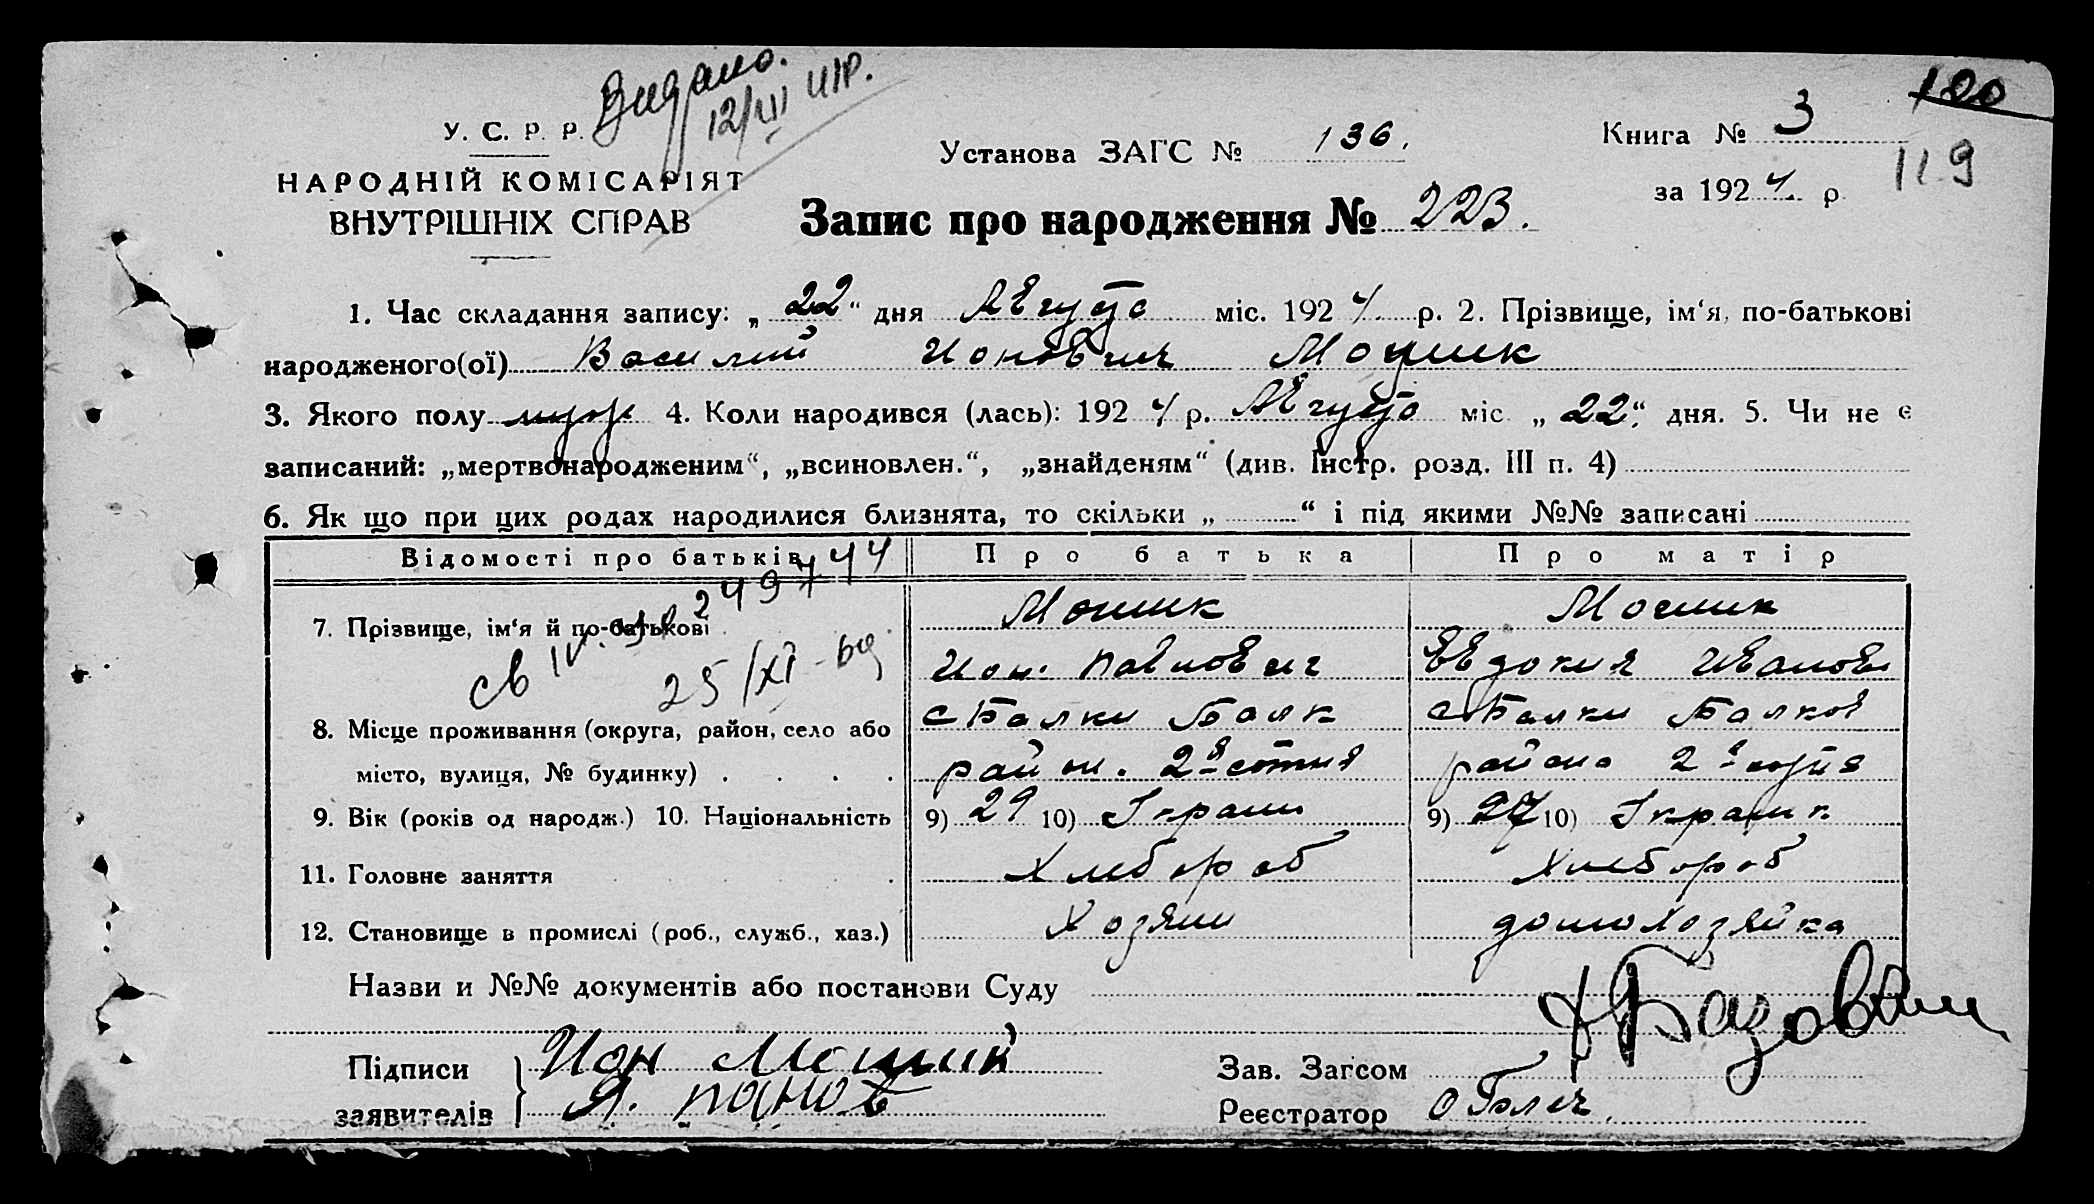 Видано.
12/VI
100
У. С. Р. Р.
Установа ЗАГС № 136.
Книга № 3
119
НАРОДНІЙ КОМІСАРІЯТ
за 1924 р.
ВНУТРІШНІХ СПРАВ
Запис про народження № 223.
1. Час складання запису: „22“ дня Августа міс. 1924 р. 2. Прізвище, ім‘я, по-батькові
народженого(ої) Василий Ионович Мошик
3. Якого полу муж 4. Коли народився (лась): 1924 р. Августа міс. „22“ дня. 5. Чи не є
записаний: „мертвонародженим“, „всиновлен.“, „знайденям“ (див. Інстр. розд. III п. 4)
6. Як що при цих родах народилися близнята, то скільки „ “ і під якими №№ записані
Відомості про батьків Про батька Про матір
7. Прізвище, ім‘я й по-батькові Мошик Мошик
Ион. Павлович Евдокия Иванов
св 25/XI-
8. Місце проживання (округа, район, село або с Балки Балк с Балки Балков
місто, вулиця, № будинку) район. 2я сотня района 2я сотня
9. Вік (років од народж.) 10. Національність 9) 29 10) Украин 9) 27 10) Украинк
11. Головне заняття Хлебороб Хлебороб
12. Становище в промислі (роб., служб., хаз.) Хозяин домохозяйка
Назви и №№ документів або постанови Суду
Підписи Ион Мошик Зав. Загсом
заявителів Я. Панов Реєстратор